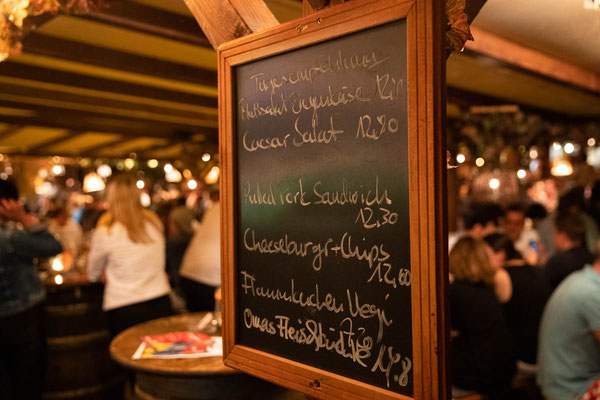 Tagesempfehlung
Blattsalat Ziegenkäse
Caesar Salat 12,90
Pulled Pork Sandwich
12,30
Cheeseburger+Chips
12,60
Flammkuchen Vegi
Omas Fleischküchle